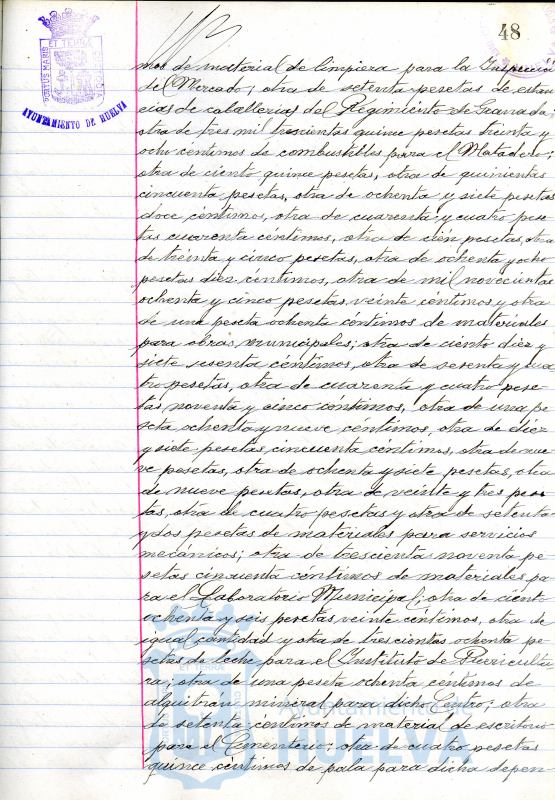 48
PORTUS MARIS
ET TERRÆ
AYUNTAMIENTO DE HUELVA
mos de material de limpiera para la Inspección
del Mercado; otra de setenta pesetas de estan-
cias de caballerias del Regimiento de Granada;
otra de tres mil trescientas quince pesetas treinta y
ocho céntimos de combustibles para el Matadero;
otra de ciento quince pesetas, otra de quinientas
cincuenta pesetas, otra de ochenta y siete pesetas
doce céntimos, otra de cuarenta y cuatro pese-
tas cuarenta céntimos, otra de cien pesetas, otra
de treinta y cinco pesetas, otra de ochenta y ocho
pesetas diez céntimos, otra de mil novecientas
ochenta y cinco pesetas, veinte céntimos y otra
de una peseta ochenta céntimos de materiales
para obras municipales; otra de ciento diez y
siete sesenta céntimos, otra de sesenta y cua-
tro pesetas, otra de cuarenta y cuatro pese-
tas noventa y cinco céntimos, otra de una pe-
seta ochenta y nueve céntimos, otra de diez
y siete pesetas cincuenta céntimos, otra de nue-
ve pesetas, otra de ochenta y siete pesetas, otra
de nueve pesetas, otra de veinte y tres pese-
tas, otra de cuatro pesetas y otra de setenta
y dos pesetas de materiales para servicios
mecánicos; otra de trescienta noventa pe-
setas cincuenta céntimos de materiales pa-
ra el Laboratorio Municipal; otra de ciento
ochenta y seis pesetas veinte céntimos, otra de
igual cantidad y otra de trescientas ochenta pe-
setas de leche para el Instituto de Puericultu-
ra; otra de una peseta ochenta céntimos de
alquitran mineral para dicho Centro; otra
de setenta céntimos de material de escritorio
para el Cementerio; otra de cuatro pesetas
quince céntimos de pala para dicha depen-
Ayuntamiento de
HUELVA